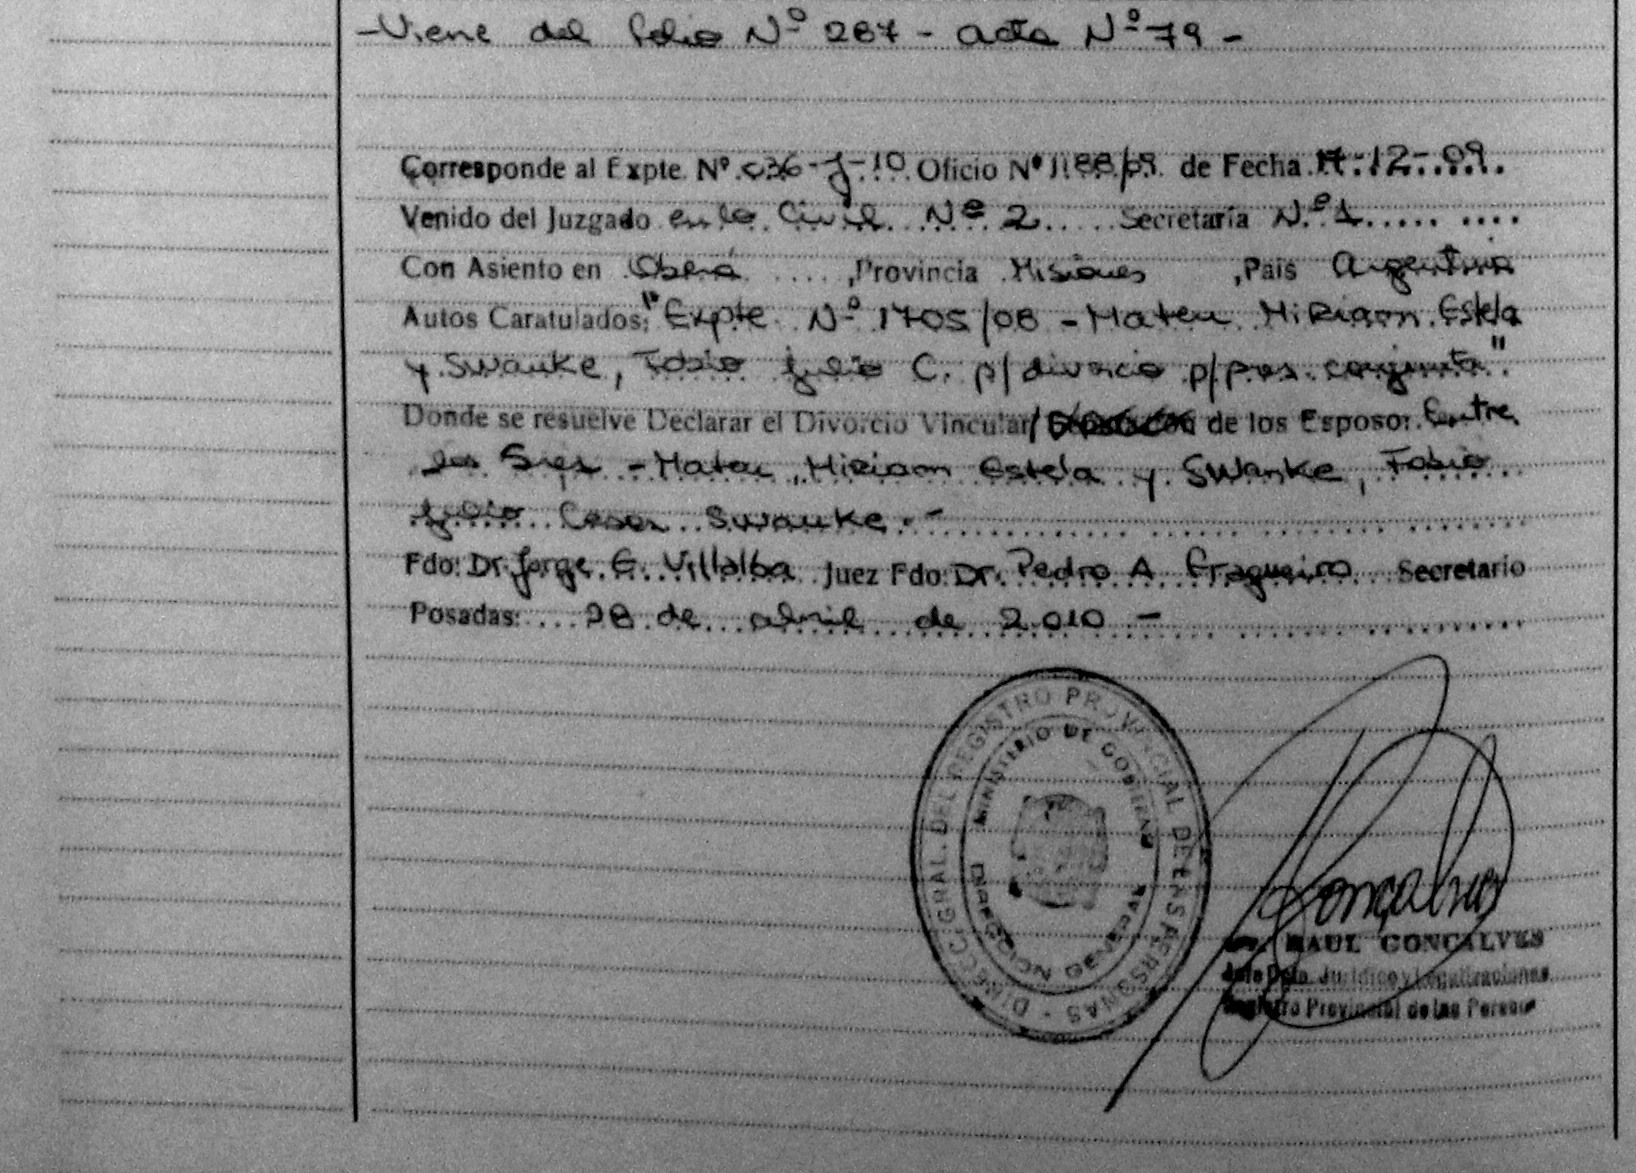 -Viene del folio Nº 287 - acta Nº 79 -
Corresponde al Expte. Nº 636-J-10 Oficio Nº 1188/09 de Fecha 17-12-09.
Venido del Juzgado en lo Civil Nº 2 Secretaría Nº 1
Con Asiento en Oberá ,Provincia Misiones ,País Argentina
Autos Caratulados: "Expte Nº 1705/08 - Mateu Miriam Estela
y Swanke, Fabio Julio C. p/ divorcio p/pres. conjunta"
Donde se resuelve Declarar el Divorcio Vincular/ de los Esposo: Entre
los Sres - Mateu, Miriam Estela y Swanke, Fabio
Julio Cesar Swanke.-
Fdo: Dr. Jorge E. Villalba Juez Fdo: Dr. Pedro A Fragueiro Secretario
Posadas: 28 de abril de 2.010 -
DIRECC. GRAL. DEL REGISTRO PROVINCIAL DE LAS PERSONAS -
MINISTERIO DE GOBIERNO
DIRECCION GENERAL
Gonçalves
RAUL GONCALVES
Jefe Dpto. Jurídico y Legalizaciones
Registro Provincial de las Personas